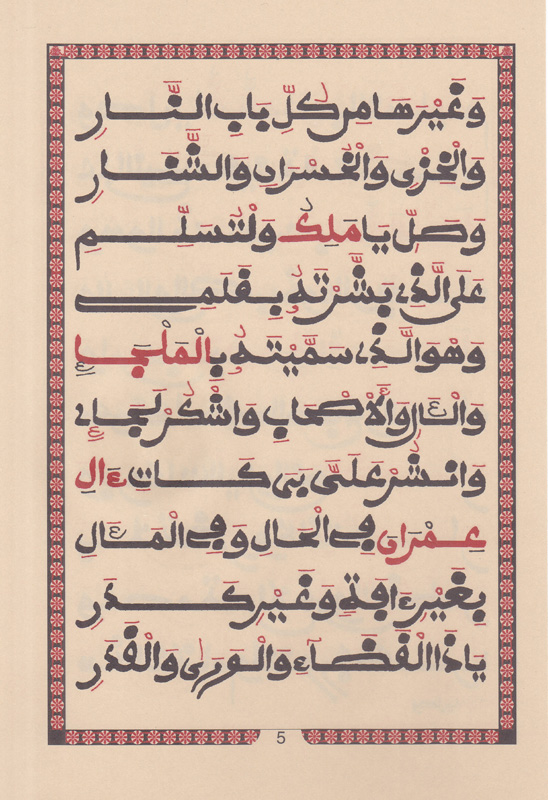 وَغَيْرِهَا مِن كُلِّ بَابِ النَّارِ
وَالْخِزْىِ وَالْخُسْرَانِ وَالشَّنَارِ
وَصَلِّ يَا مَلِكُ وَلْتُسَلِّمِ
عَلَى الَّذِى بَشَّرْتَهُ بِقَلَمِ
وَهْوَ الَّذِى سَمَّيْتَهُ بِالْمَلْجَإِ
وَالْـَٔالِ وَالْأَصْحَابِ وَاشْكُرْ لَجَإِى
وَانْشُرْ عَلَىَّ بَرَكَاتِ ءَالِ
عِمْرَانَ فِى الْحَالِ وَفِى الْمَـَٔالِ
بِغَيْرِ ءَافَةٍ وَغَيْرِ كَدَرِ
يَاذَا الْقَضَاءِ وَالْوَرَى وَالْقَدَرِ
5